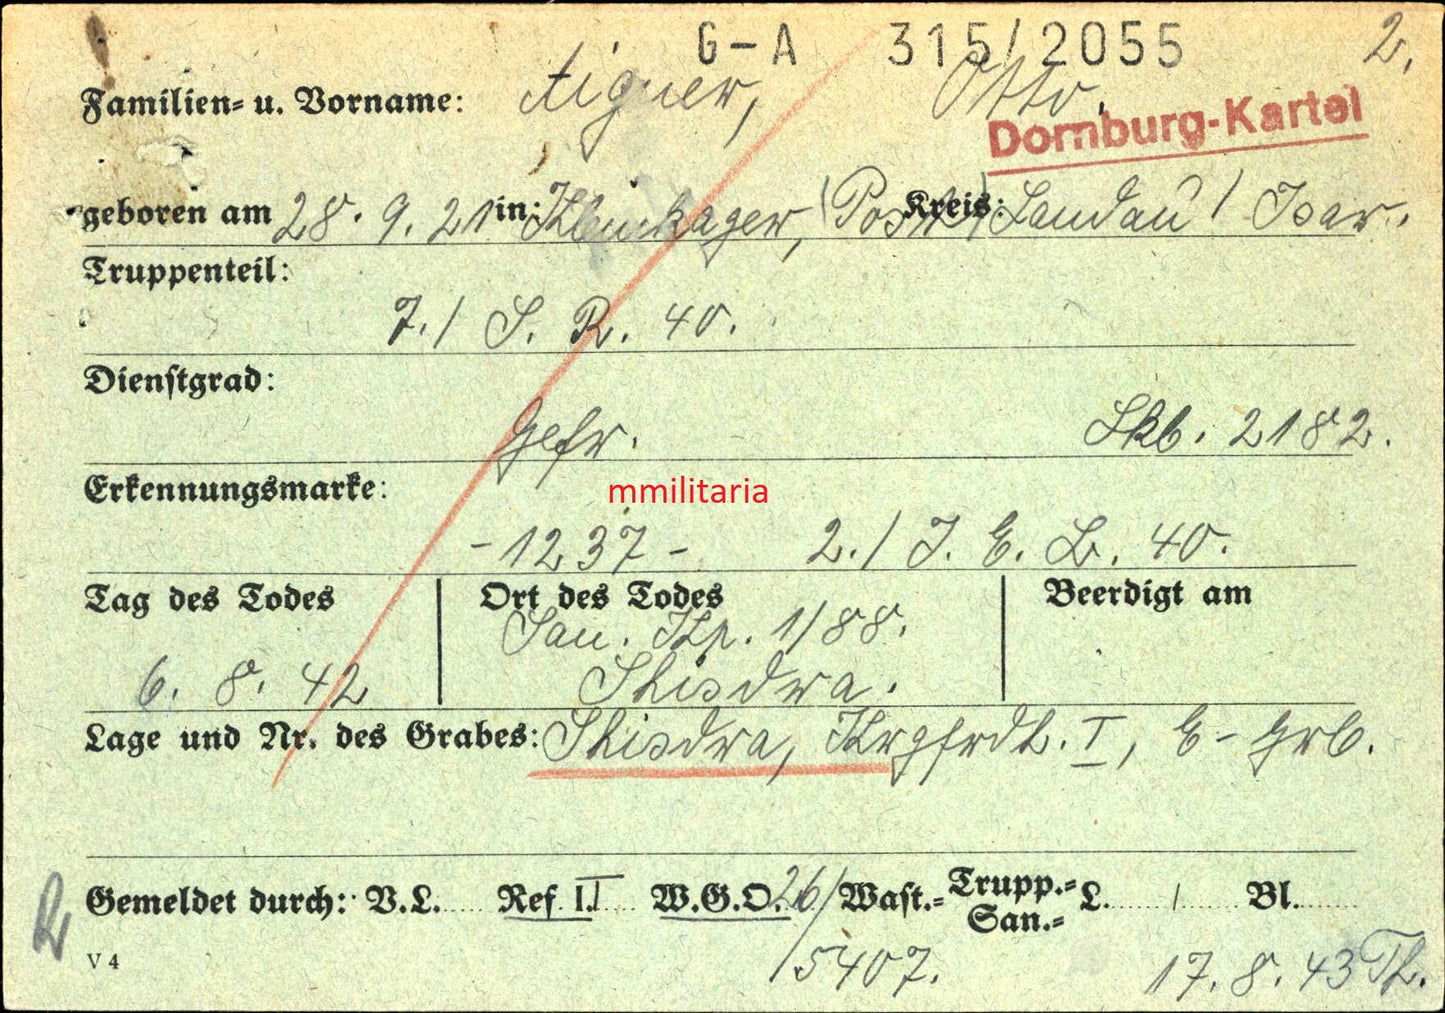 G-A 315/2055 2.
Familien- u. Vorname: Aigner, Otto.
Dornburg-Kartei
geboren am 28. 9. 21 in: (Post) Kreis: Landau / Isar.
Truppenteil:
7./ S. R. 40.
Dienstgrad:
Gefr. Skb. 2182.
Erkennungsmarke:
mmilitaria
- 1237 - 2./ J. E. B. 40.
Tag des Todes Ort des Todes Beerdigt am
San. Kp. 1/88.
6. 8. 42 Shisdra.
Lage und Nr. des Grabes: Shisdra, Krgfrdh. I, E- Grb.
Gemeldet durch: V.L. Ref. II W.G.O. 26/ Wast.- Trupp.- L. / Bl.
San.-
V 4 15407. 17. 8. 43